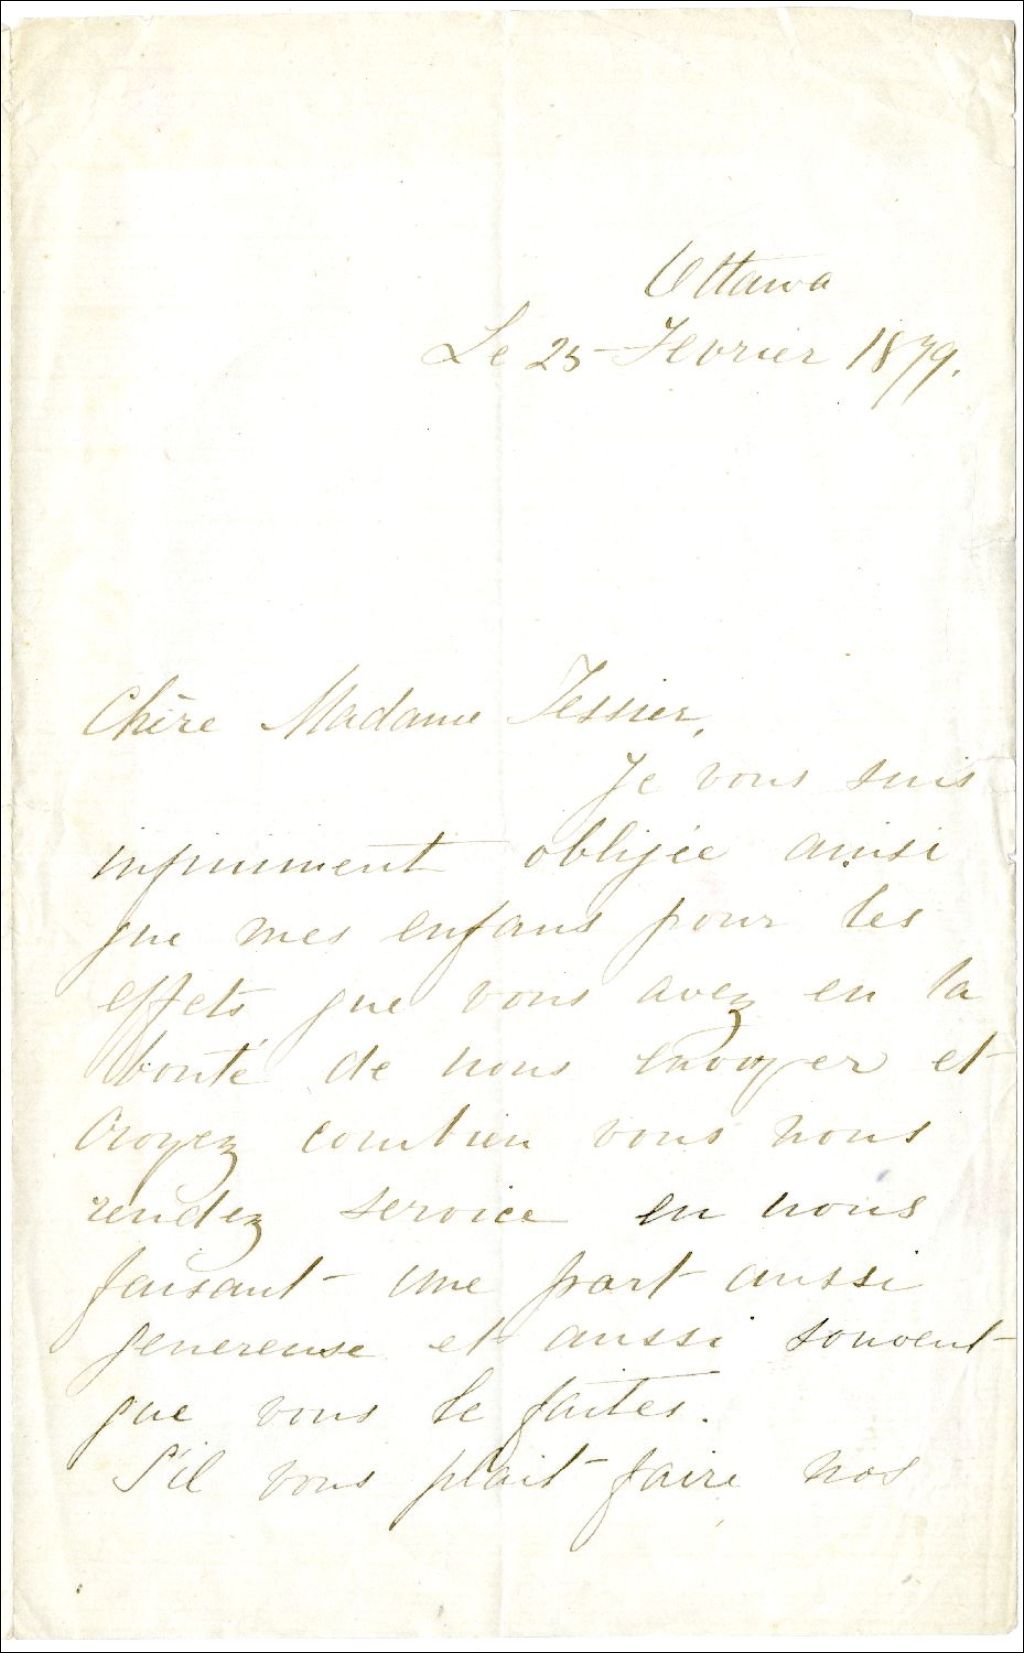 Ottawa
Le 25 Fevrier 1879.
Chère Madame Tessier,
Je vous suis
infiniment obligée ainsi
que mes enfans pour les
effets que vous avez eu la
bonté de nous envoyer et
croyez combien vous nous
rendez service en nous
faisant une part aussi
genereuse et aussi souvent
que vous le faites.
S'il vous plait faire nos